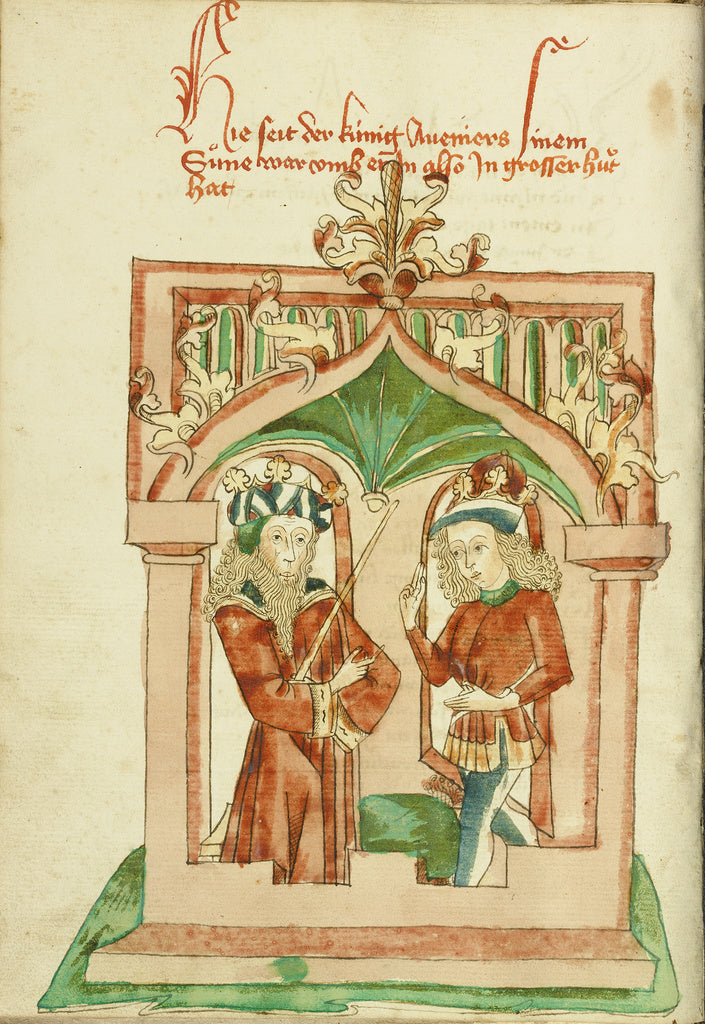 Hie seit der künig Aueniers sinem
Süne war vmb er In also In grosser hůt
hat